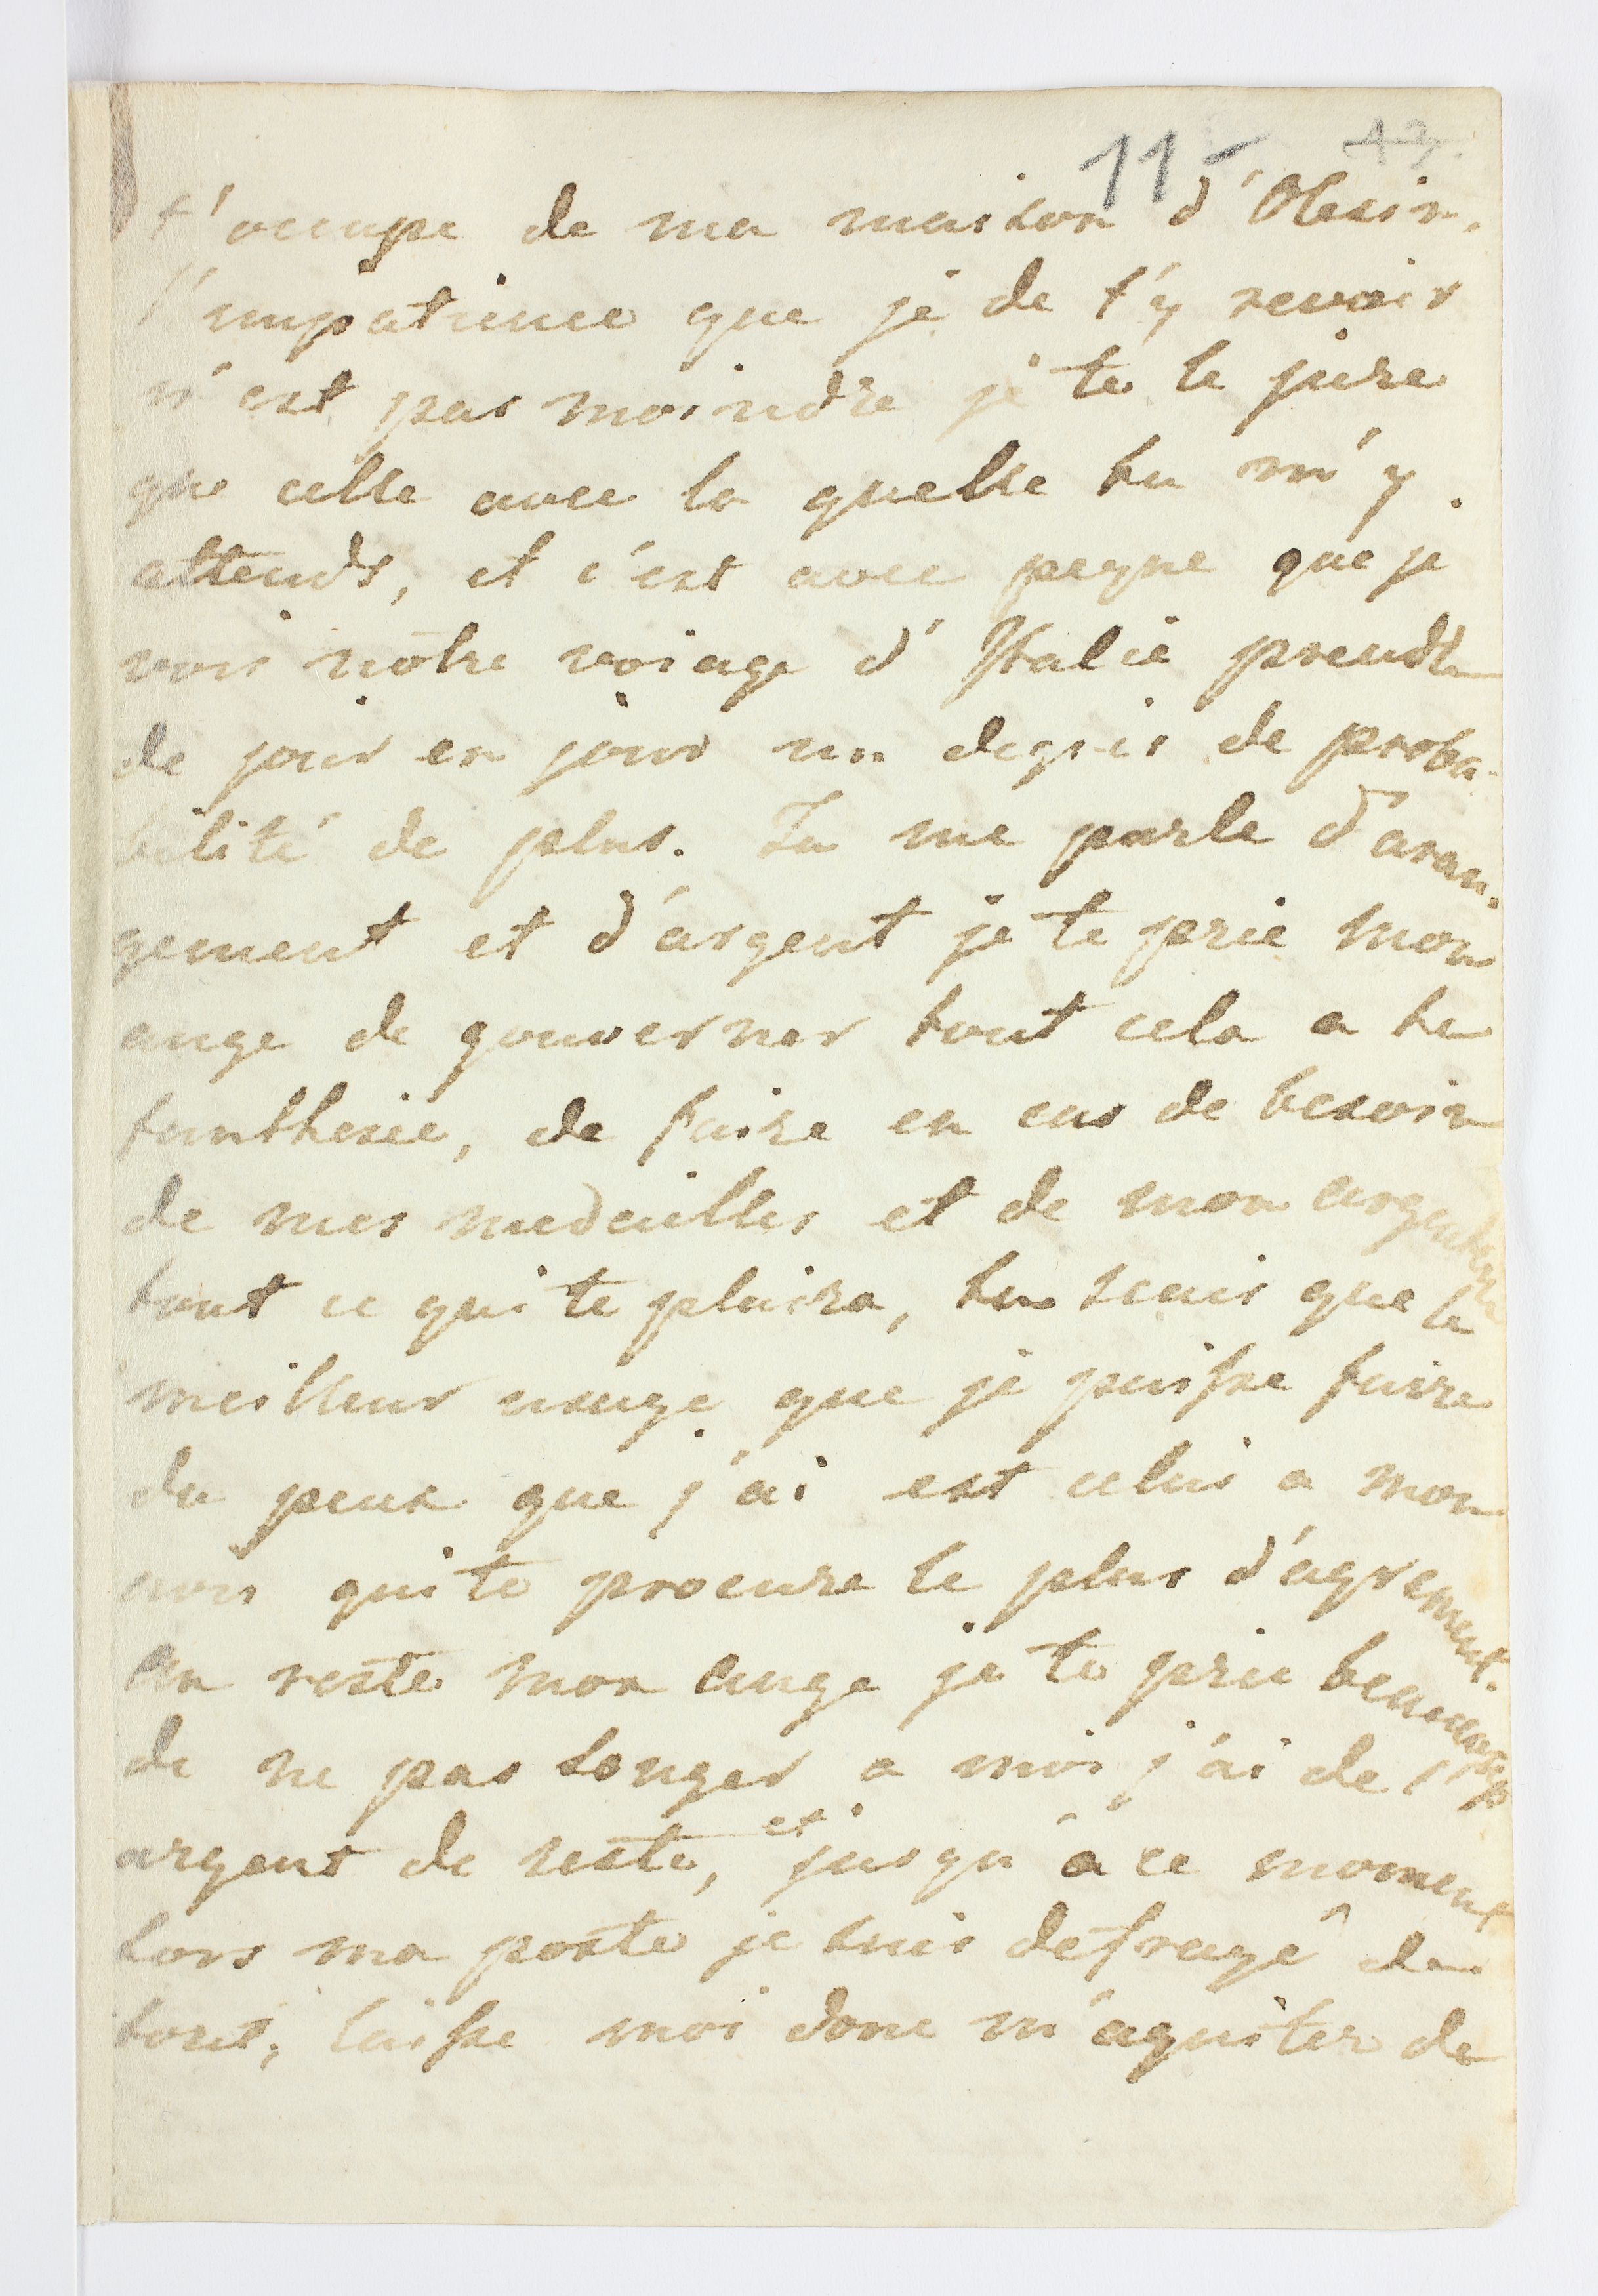 11
t'occupe de ma maison d'Olesin,
l'impatience que je de t'y revoir
n'est pas moindre je te le jure
que celle avec la quelle tu m'y
attends, et c'est avec peyne que je
vois nôtre voiage d'Italie prendre
de jour en jour un degrés de proba-
bilité de plus. Tu me parle d'aran-
gement et d'argent je te prie mon
ange de gouverner tout cela a ta
fanthesie, de faire en cas de besoin
de mes medailles et de mon argenterie
tout ce qui te plaira, tu scais que le
meilleur usage que je puisse faire
du peux que j'ai est celui a mon
avis qui te procure le plus d'agrement.
au reste mon ange je te prie beaucoup
de ne pas songer a moi j'ai de l'
argent de reste, et jusqu'à ce moment
hors ma poste je suis defrayê de
tout, laisse moi donc m'aquiter de